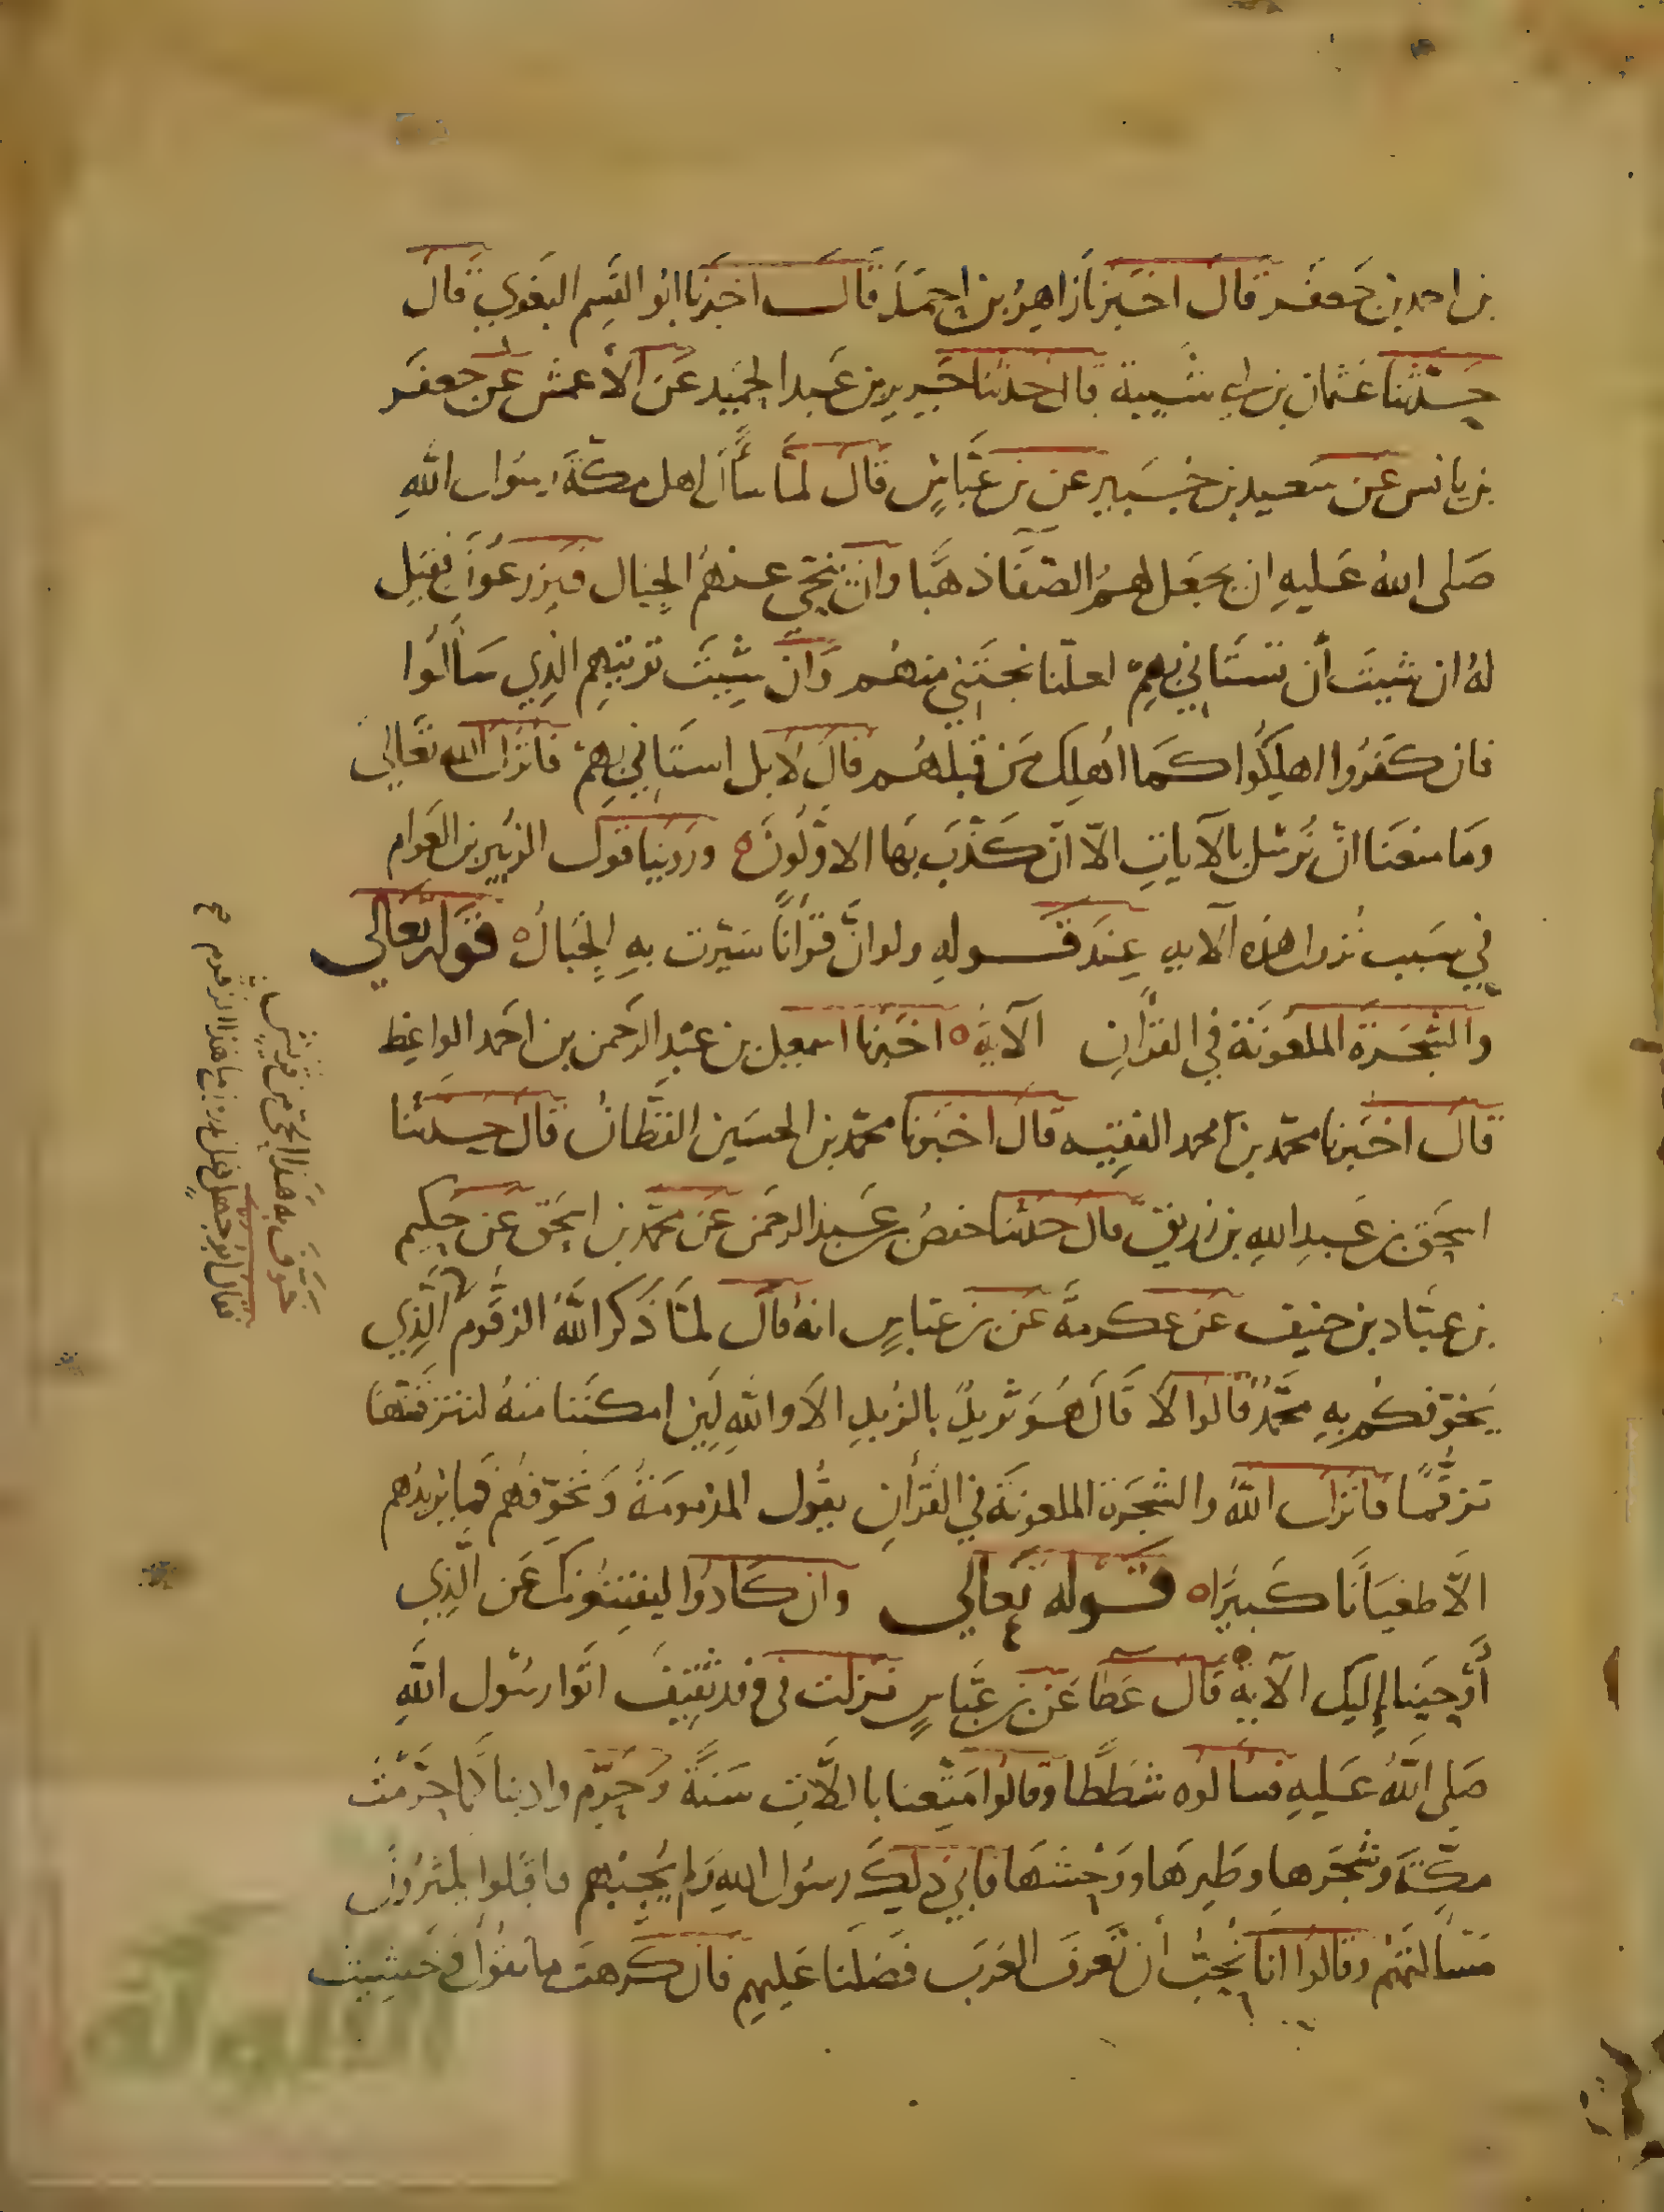 بن احمد بن جعفر قال اخبرنا زاهر بن احمد قال اخبرنا ابو القسم البغوي قال
حدثنا عثمان بن ابي شيبة قال حدثنا جرير بن عبد الحميد عن الأعمش عن جعفر
بن اياس عن سعيد بن جبير عن بن عباس قال لما سأل اهل مكة رسول الله
صلى الله عليه ان يجعل لهم الصفا ذهبا وان ينحي عنهم الجبال فيزرعوا فقيل
له ان شيت أن تستاني بهم لعلنا نجتني منهم وان شيت نوتيهم الذي سألوا
فان كفروا اهلكوا كما اهلك من قبلهم قال لا بل استاني بهم فانزل الله تعالى
وما منعنا ان نرسل بالآيات الا ان كذب بها الاولون ٥ وروينا قول الزبير بن العوام
في سبب نزول هذه الآية عند قوله ولو ان قرآنا سيرت به الجبال ٥ قوله تعالى
والشجرة الملعونة في القرآن الآية ٥ اخبرنا اسمعيل بن عبد الرحمن بن احمد الواعظ
قال اخبرنا محمد بن محمد الفقيه قال اخبرنا محمد بن الحسين القطان قال حدثنا
اسحق بن عبد الله بن زريق قال حدثنا حفص بن عبد الرحمن عن محمد بن اسحق عن حكيم
بن عباد بن حنيف عن عكرمة عن بن عباس انه قال لما ذكر الله الزقوم الذي
يخوفكم به محمد قالوا لا قال هو ثريد بالزبد الا والله لين امكننا منه لنتزقمنها
تزقما فانزل الله والشجرة الملعونة في القرآن يقول المذمومة ونخوفهم فما يزيدهم
الا طغيانا كبيرا ٥ قوله تعالى وان كادوا ليفتنونك عن الذي
أوحينا إليك الآية ٥ قال عطا عن بن عباس نزلت في وفد ثقيف اتوا رسول الله
صلى الله عليه فسالوه شططا وقالوا متعنا باللات سنة وحرم وادينا كما حرمت
مكة وشجرها وطيرها ووحشها فابى ذلك رسول الله ولم يجبهم فاقبلوا يكثرون
مسألتهم وقالوا انا نحب أن تعرف العرب فضلنا عليهم فان كرهت ما نقول وخشيت
خوف به هذا الحي من قريش
فقال ابو جهل هل تدرون ما هذا الزقوم
الألوكة